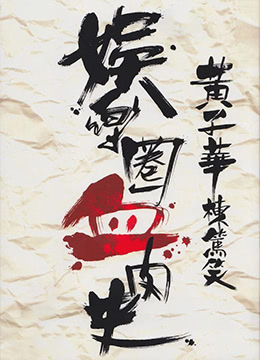 黃子華棟篤笑
娛樂圈血肉史